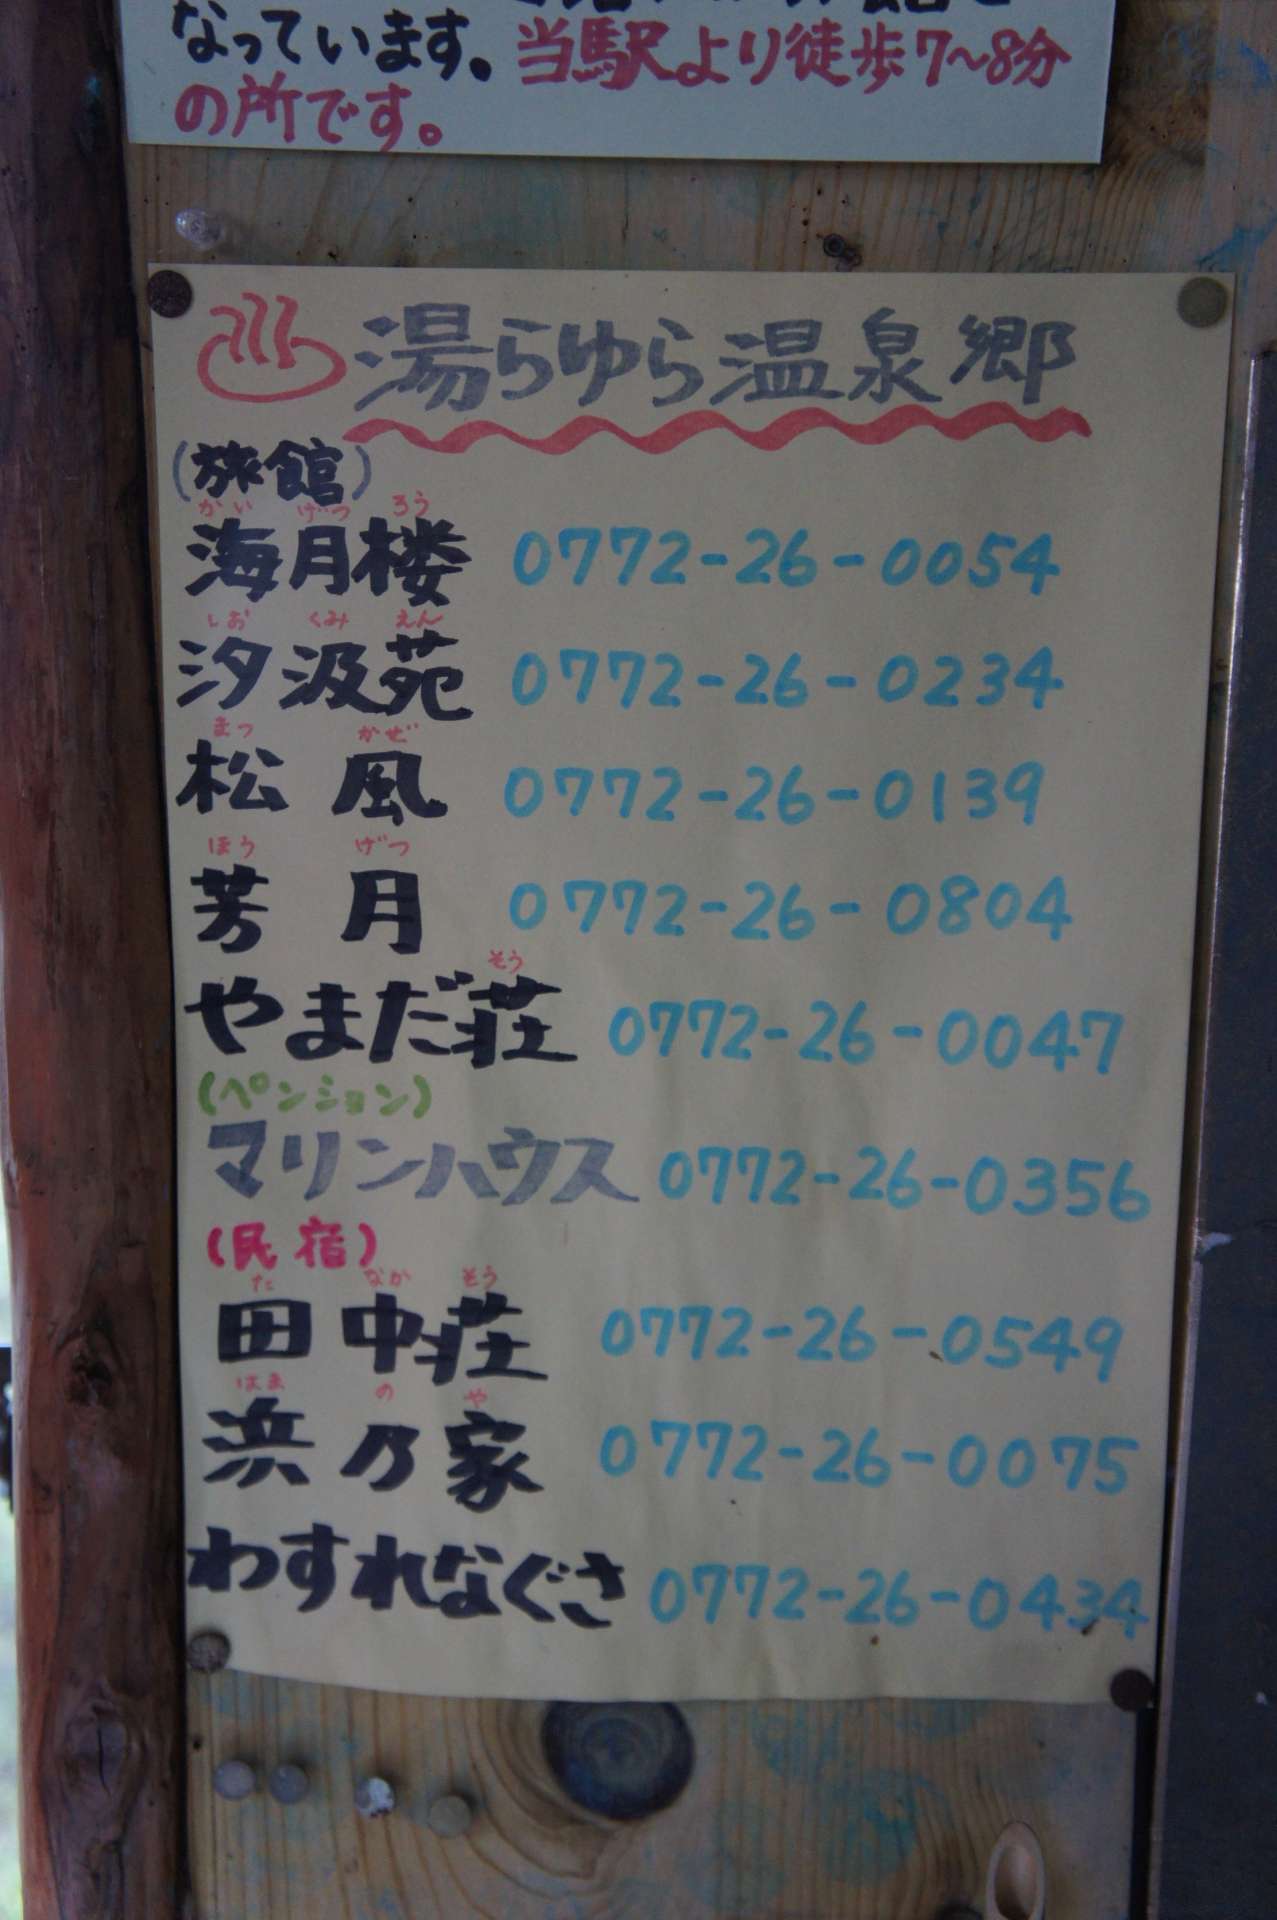 なっています。当駅より徒歩7~8分
の所です。
湯らゆら温泉郷
(旅館)
かい げつ ろう
海月楼 0772-26-0054
しお くみ えん
汐汲苑 0772-26-0234
まつ かぜ
松風 0772-26-0139
ほう げつ
芳月 0772-26-0804
そう
やまだ荘 0772-26-0047
(ペンション)
マリンハウス 0772-26-0356
(民宿)
た なか そう
田中荘 0772-26-0549
はま の や
浜乃家 0772-26-0075
わすれなぐさ 0772-26-0434